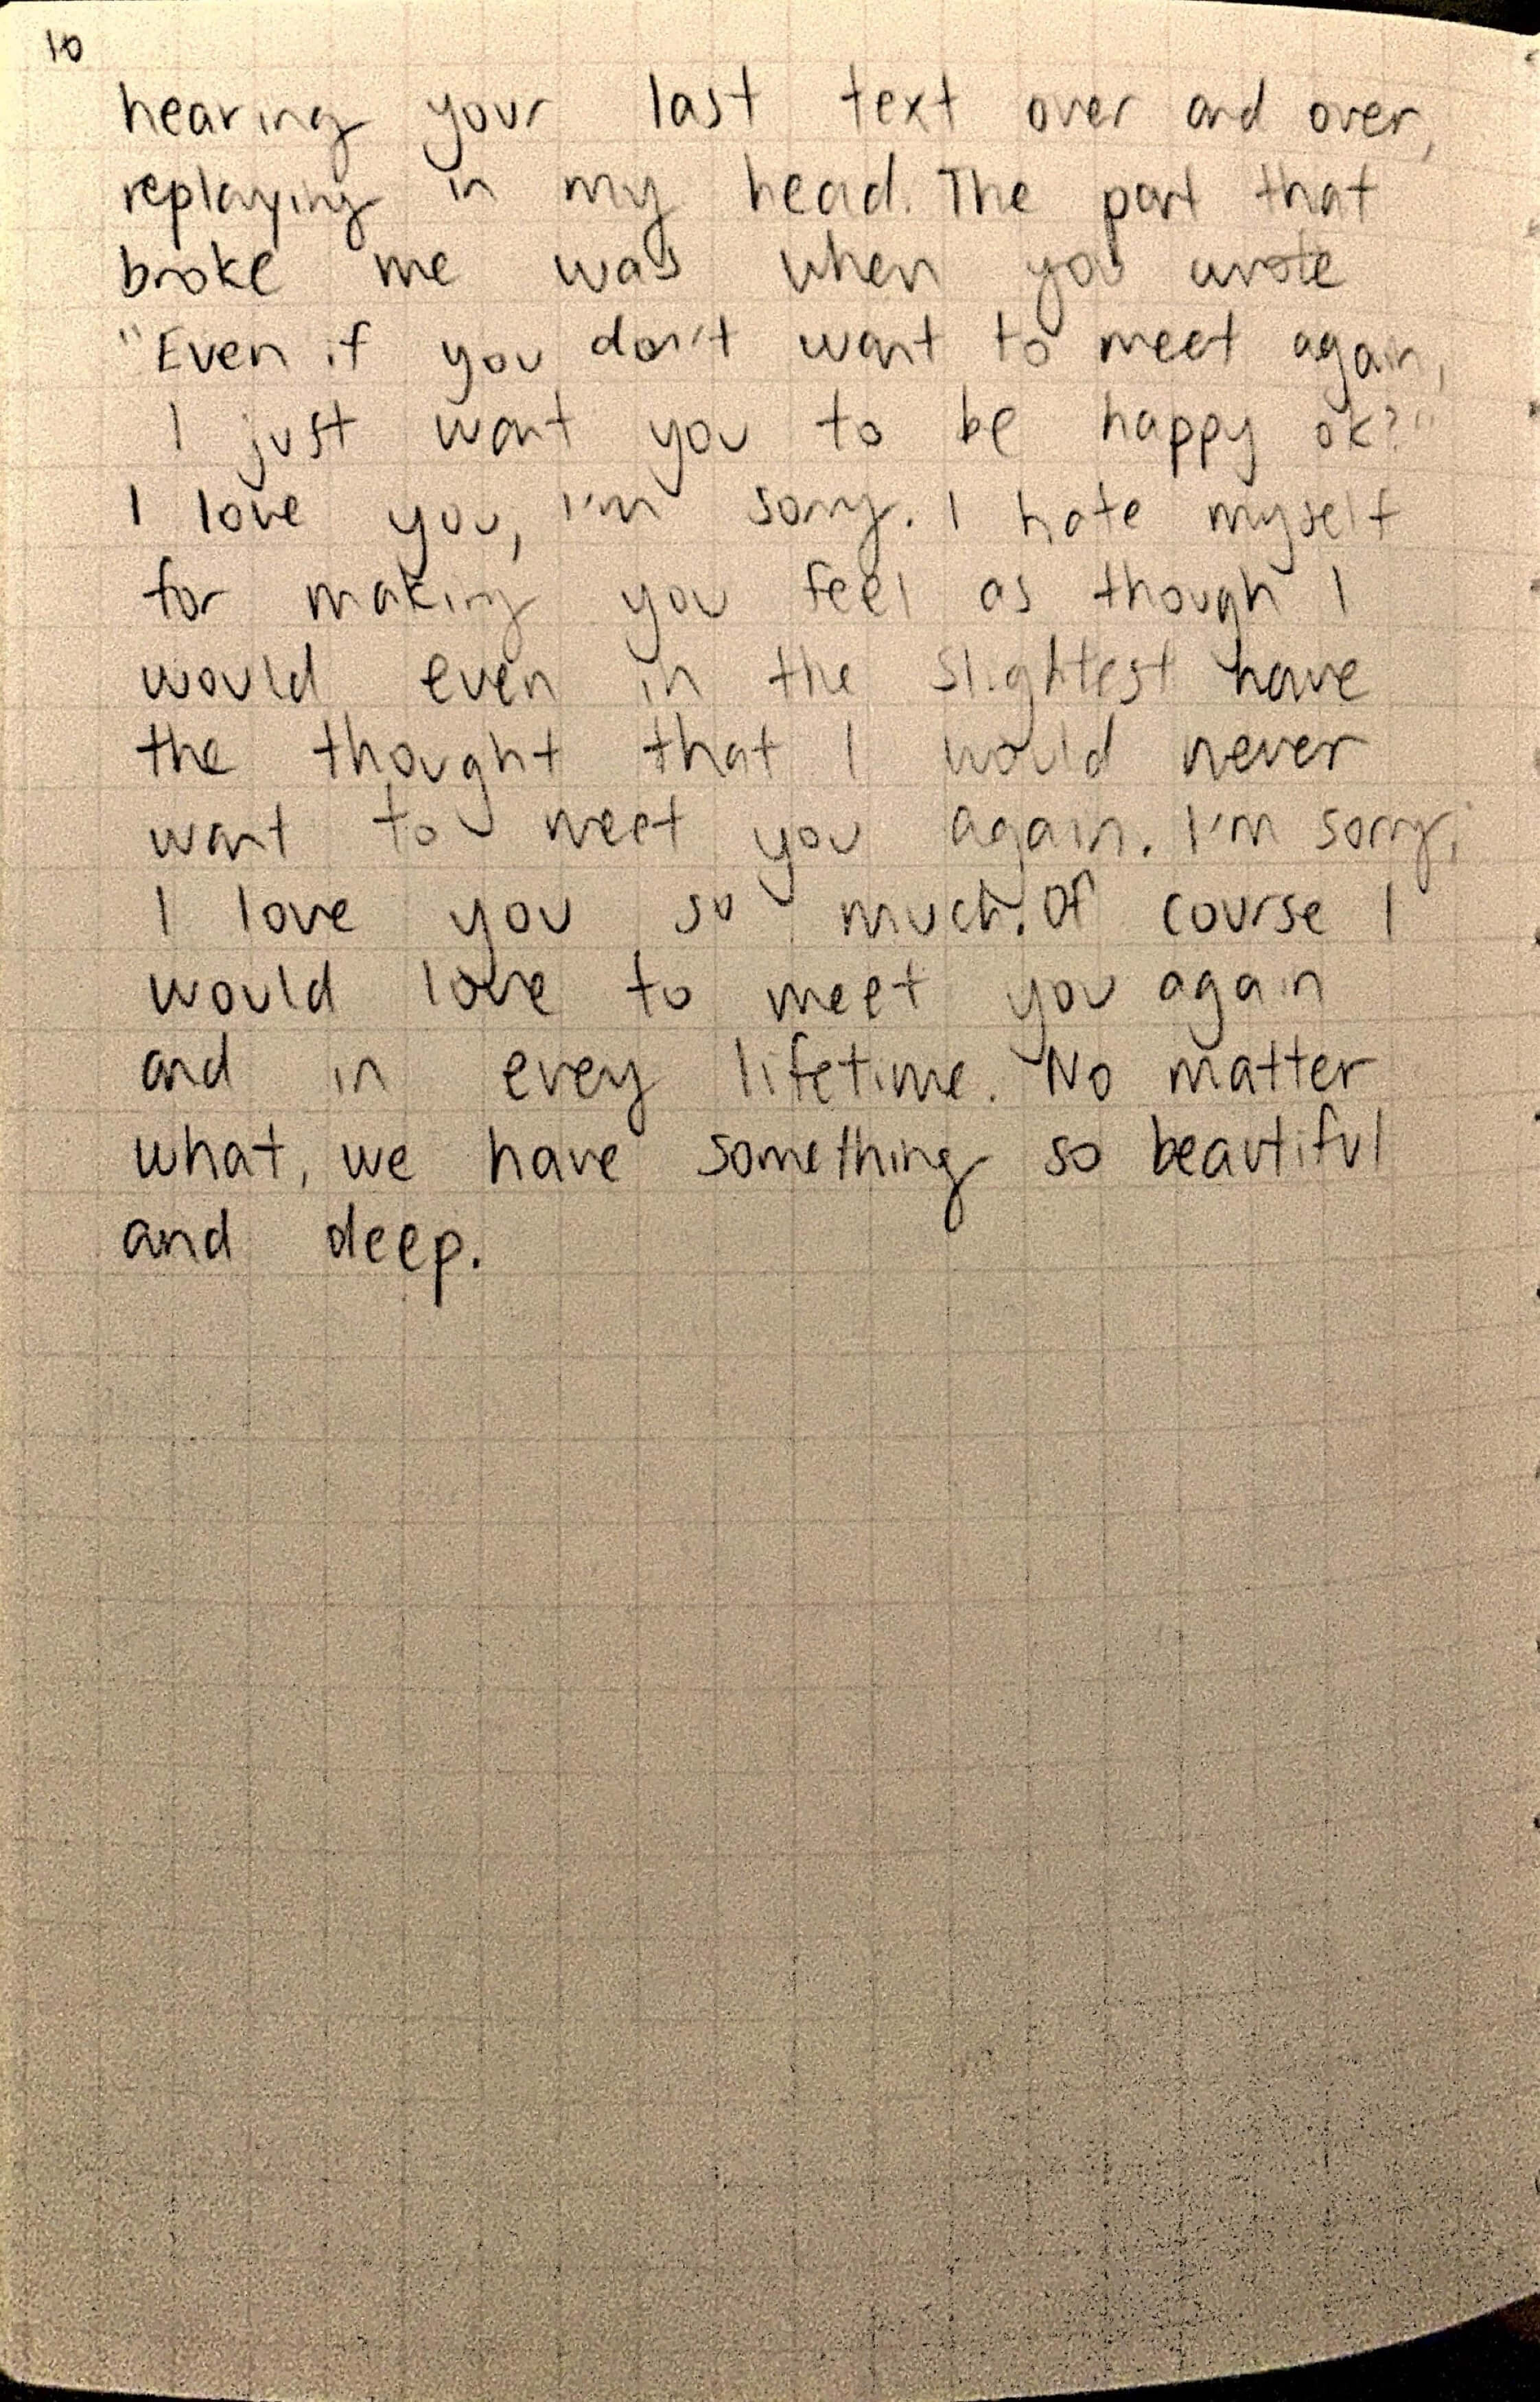 10
hearing your last text over and over,
replaying in my head. The part that
broke me was when you wrote
"Even if you don't want to meet again,
I just want you to be happy ok?"
I love you, I'm sorry. I hate myself
for making you feel as though I
would even in the slightest have
the thought that I would never
want to meet you again. I'm sorry,
I love you so much. Of course I
would love to meet you again
and in every lifetime. No matter
what, we have something so beautiful
and deep.